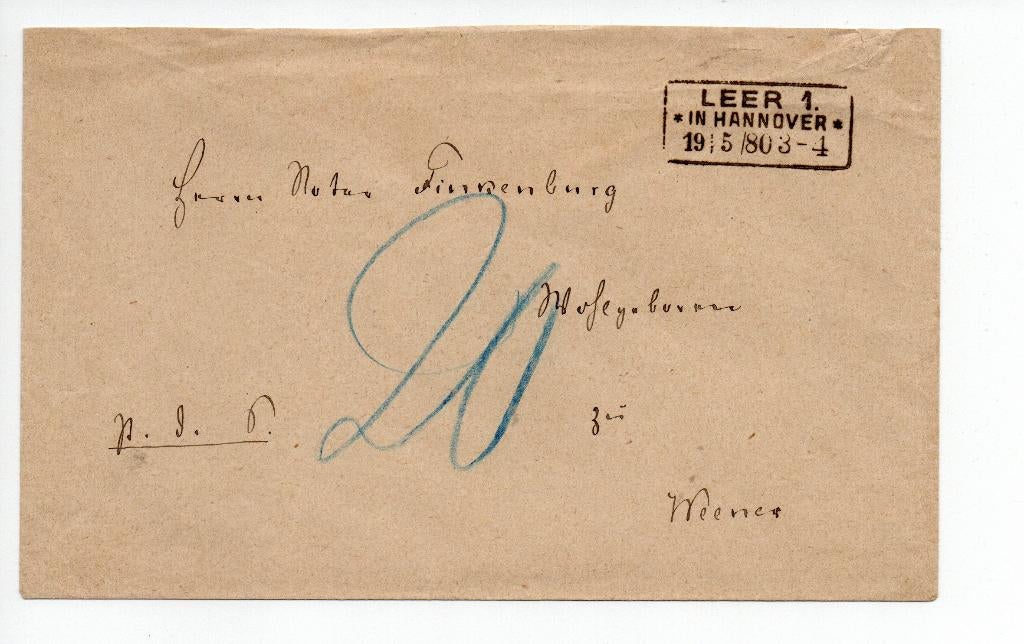 LEER 1.
* IN HANNOVER *
19 5 /80 3-4
Herrn Notar Finkenburg
20
Wohlgeboren
p. d. S.
zu
Weener